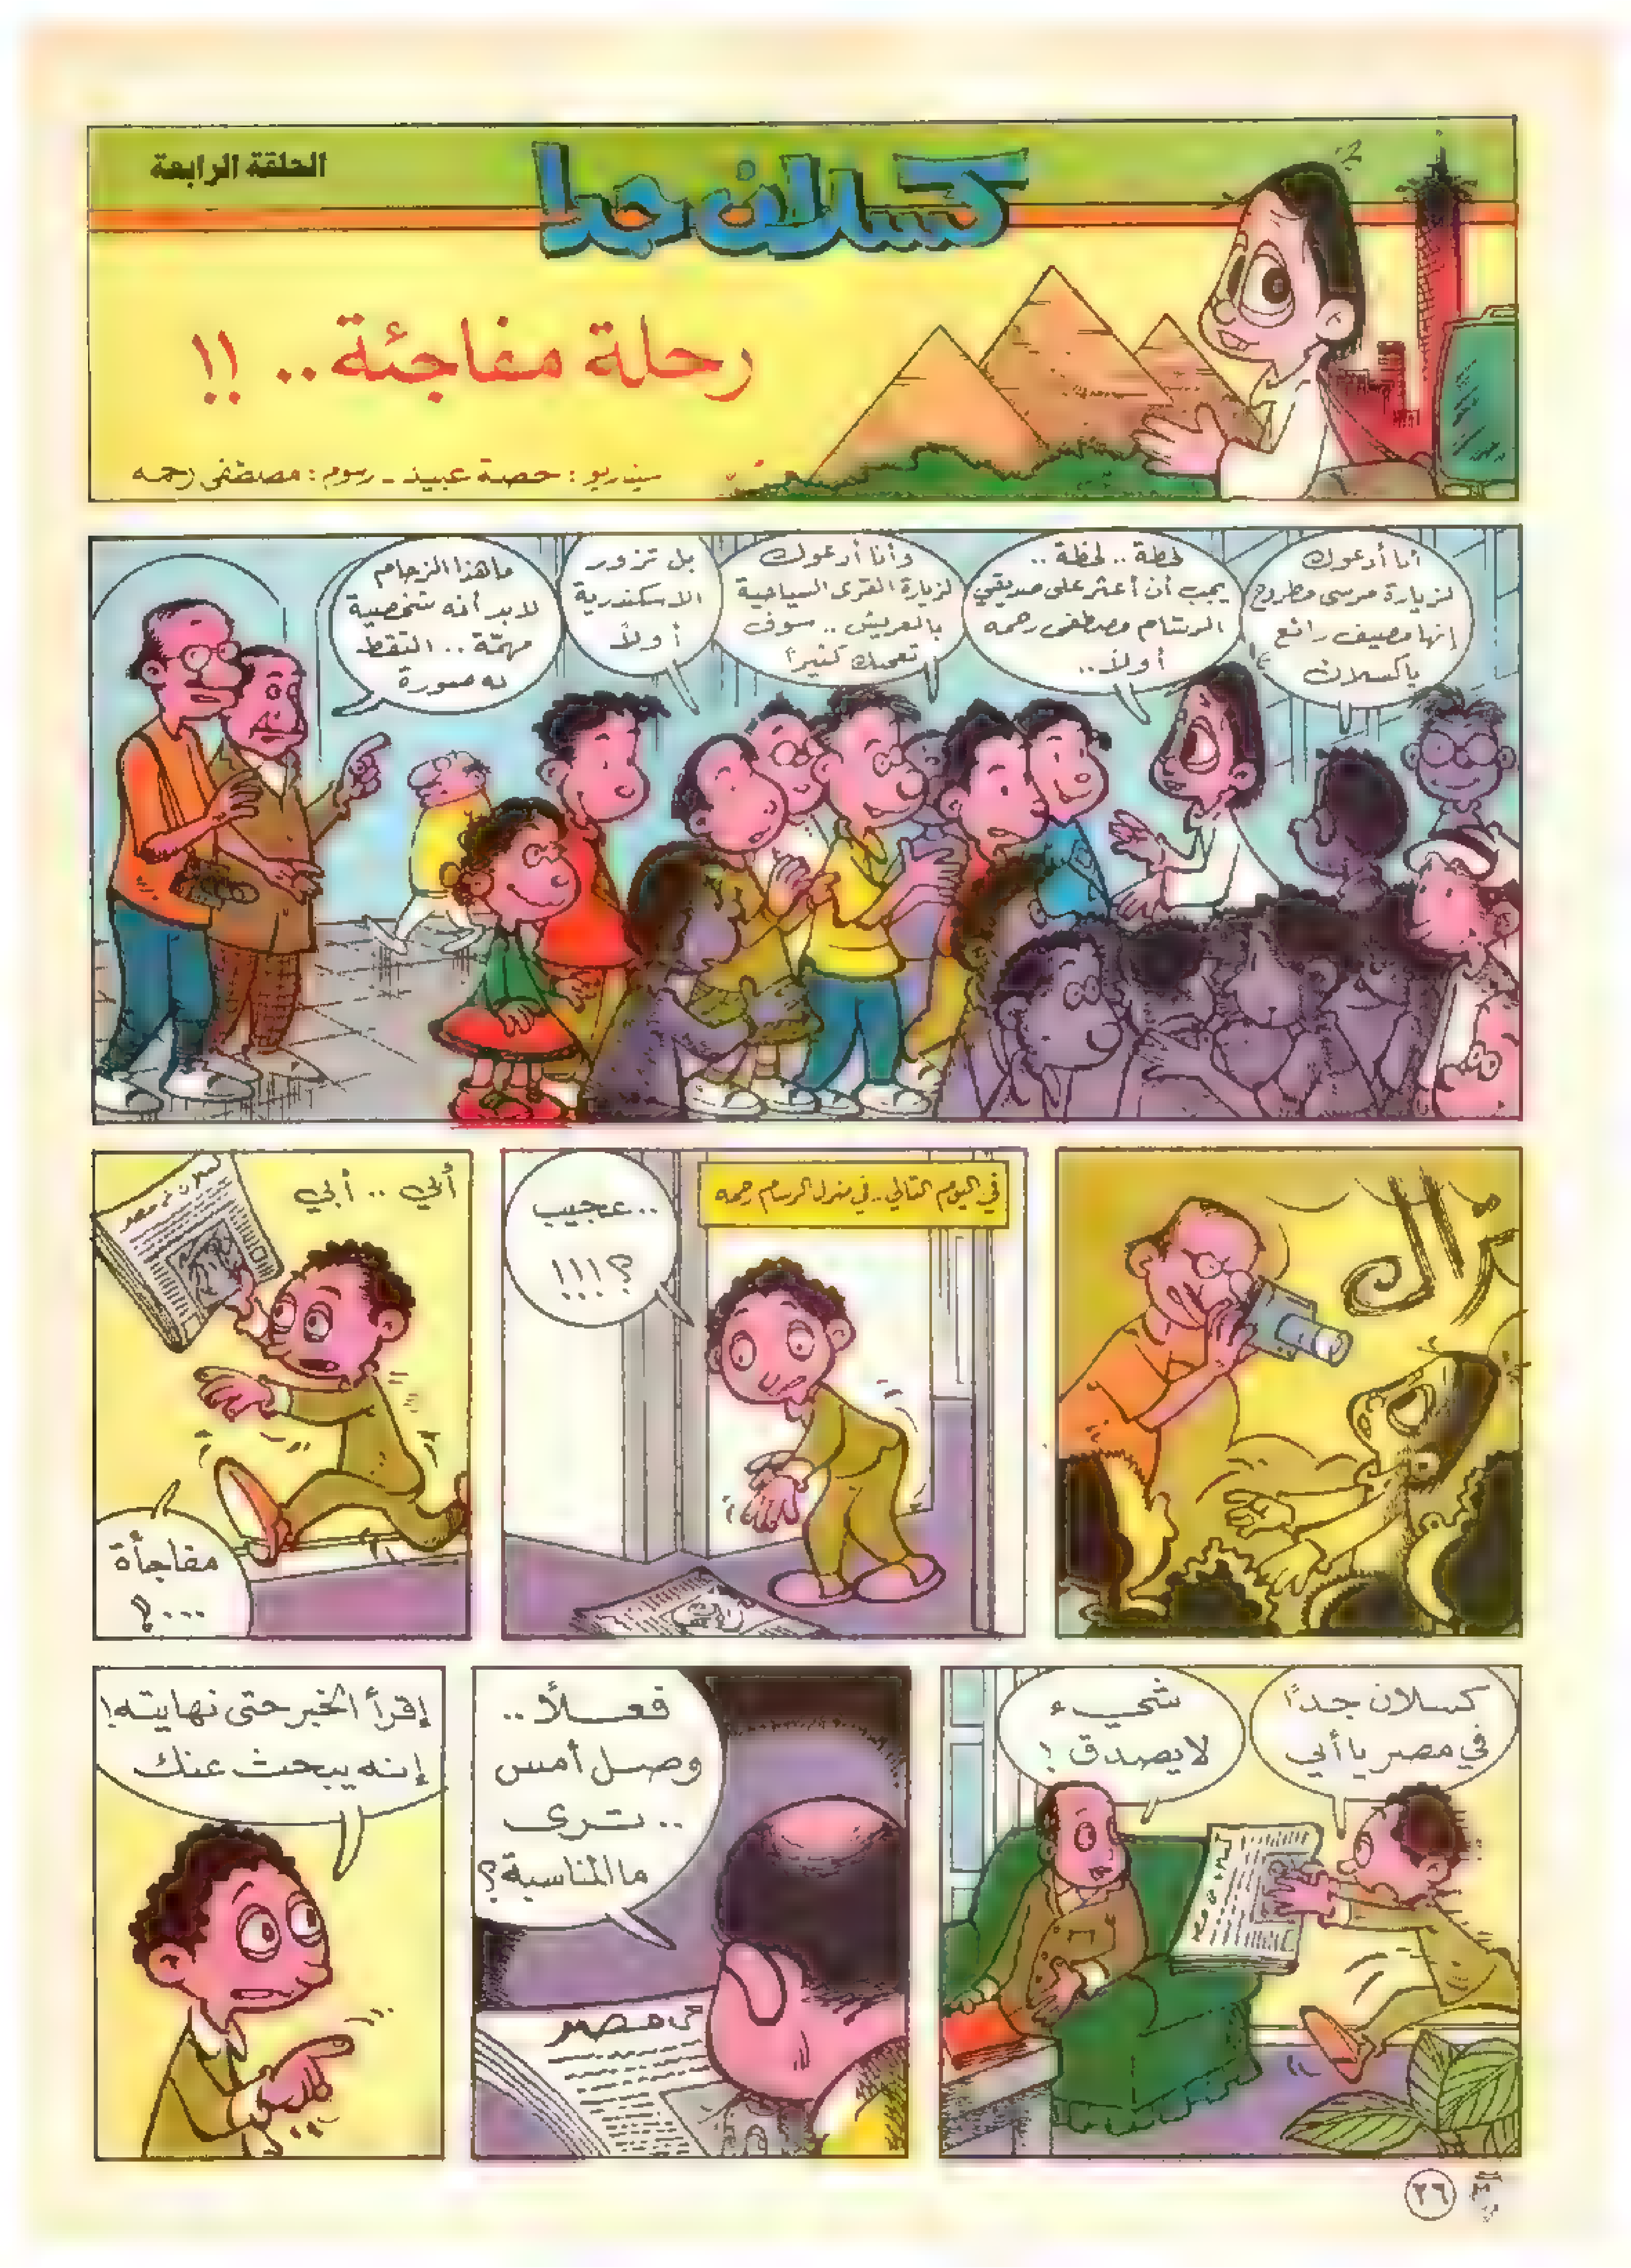 الحلقة الرابعة
كسلان جدا
رحلة مفاجئة.. !!
سيناريو : حصة عبيد - رسوم : مصطفى رحمه
أنا أدعوك
لزيارة مرسى مطروح
إنها مصيف رائع
ياكسلان
لحظة .. لحظة ..
يجب أن أعثر على صديقي
الرسام مصطفى رحمه
أولاً ..
وأنا أدعوك
لزيارة القرى السياحية
بالعريش .. سوف
تعجبك كثيراً
بل تزور
الاسكندرية
أولاً
ماهذا الزحام
لابد أنه شخصية
مهمّة .. التقط
له صورة
في اليوم التالي .. في منزل الرسام رحمه
عجيب ..
؟!!!
أبي .. أبي
مفاجأة
...؟
كسلان جداً
في مصر يا أبي
شيء
لايصدق !
فعلاً ..
وصل أمس
.. ترى
ما المناسبة ؟
مصر
إقرأ الخبر حتى نهايته !
إنه يبحث عنك
٢٦